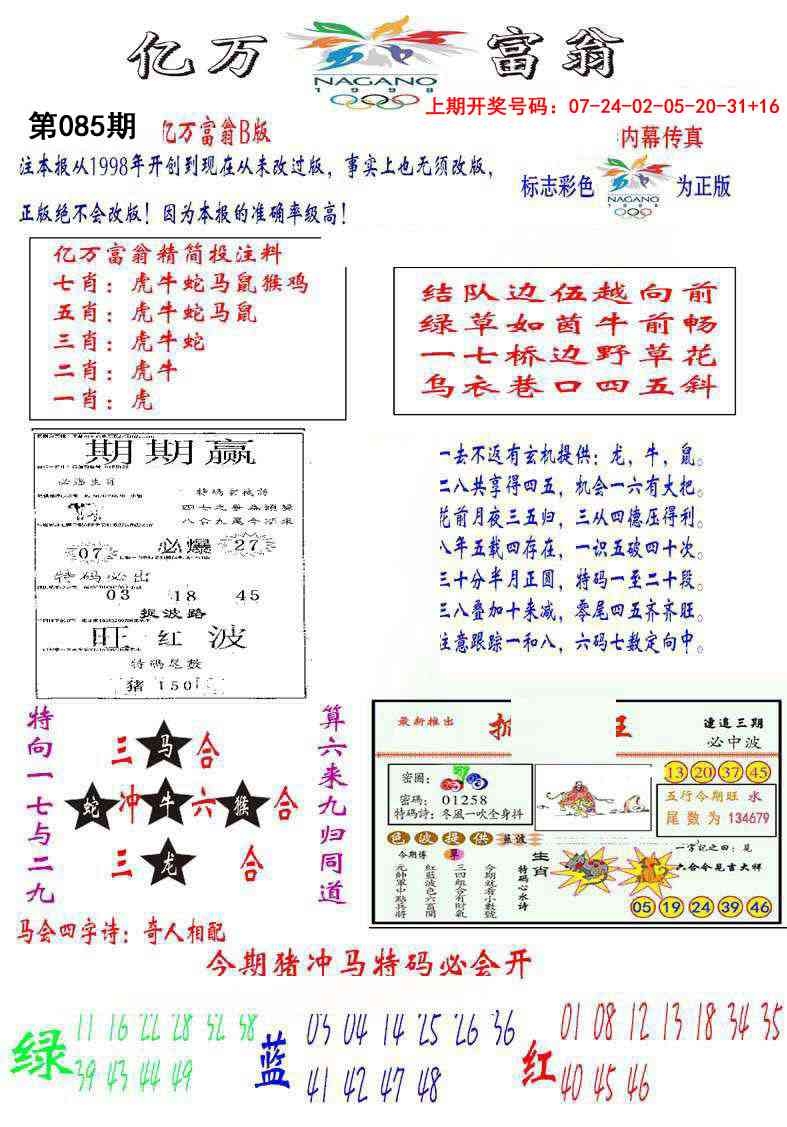 亿万
富翁
NAGANO
1998
上期开奖号码：07-24-02-05-20-31+16
第085期
亿万富翁B版
内幕传真
注本报从1998年开创到现在从未改过版，事实上也无须改版，
标志彩色
NAGANO
为正版
正版绝不会改版！因为本报的准确率级高！
亿万富翁精简投注料
七肖：虎牛蛇马鼠猴鸡
五肖：虎牛蛇马鼠
三肖：虎牛蛇
二肖：虎牛
一肖：虎
结队边伍越向前
绿草如茵牛前畅
一七桥边野草花
乌衣巷口四五斜
期期赢
必爆
07
27
特码必出
03 18 45
捉波路
旺 红 波
特碼尾数
猪 150
一去不返有玄机提供：龙，牛，鼠。
二八共享得四五，机会一六有大把。
花前月夜三五归，三从四德压得利。
八年五载四存在，一识五破四十次。
三十分半月正圆，特码一至二十段。
三八叠加十来减，零尾四五齐齐旺。
注意跟踪一和八，六码七数定向中。
特向一七与二九
三 马 合
蛇 冲 牛 六 猴 合
三 龙 合
算六来九归同道
马会四字诗：奇人相配
最新推出
王
連追三期
必中波
密圈：
密碼：01258
特碼詩：冬風一吹全身抖
13 20 37 45
五行今期旺 水
尾数为 134679
色波提供
藍波
今期博
草
元帥軍中點兵將
紅藍波色六畜開
三四組合有財氣
今期就看小數號
特码心水诗
生肖
一字記之曰：見
六合今見吉大祥
05 19 24 39 46
今期猪冲马特码必会开
绿
11 16 22 28 32 38
39 43 44 49
蓝
03 04 14 25 26 36
41 42 47 48
红
01 08 12 13 18 34 35
40 45 46